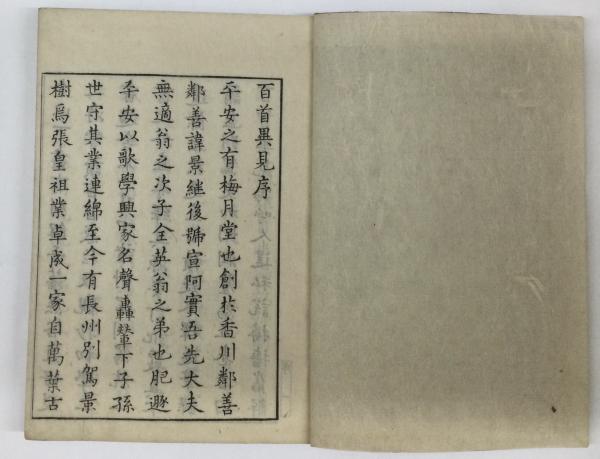 百首異見序
平安之有梅月堂也創於香川鄰善
鄰善諱景継後號宣阿實吾先大夫
無適翁之次子全英翁之弟也肥遯
平安以歌學興家名聲轟輦下子孫
世守其業連綿至今有長州別駕景
樹爲張皇祖業卓成一家自萬葉古